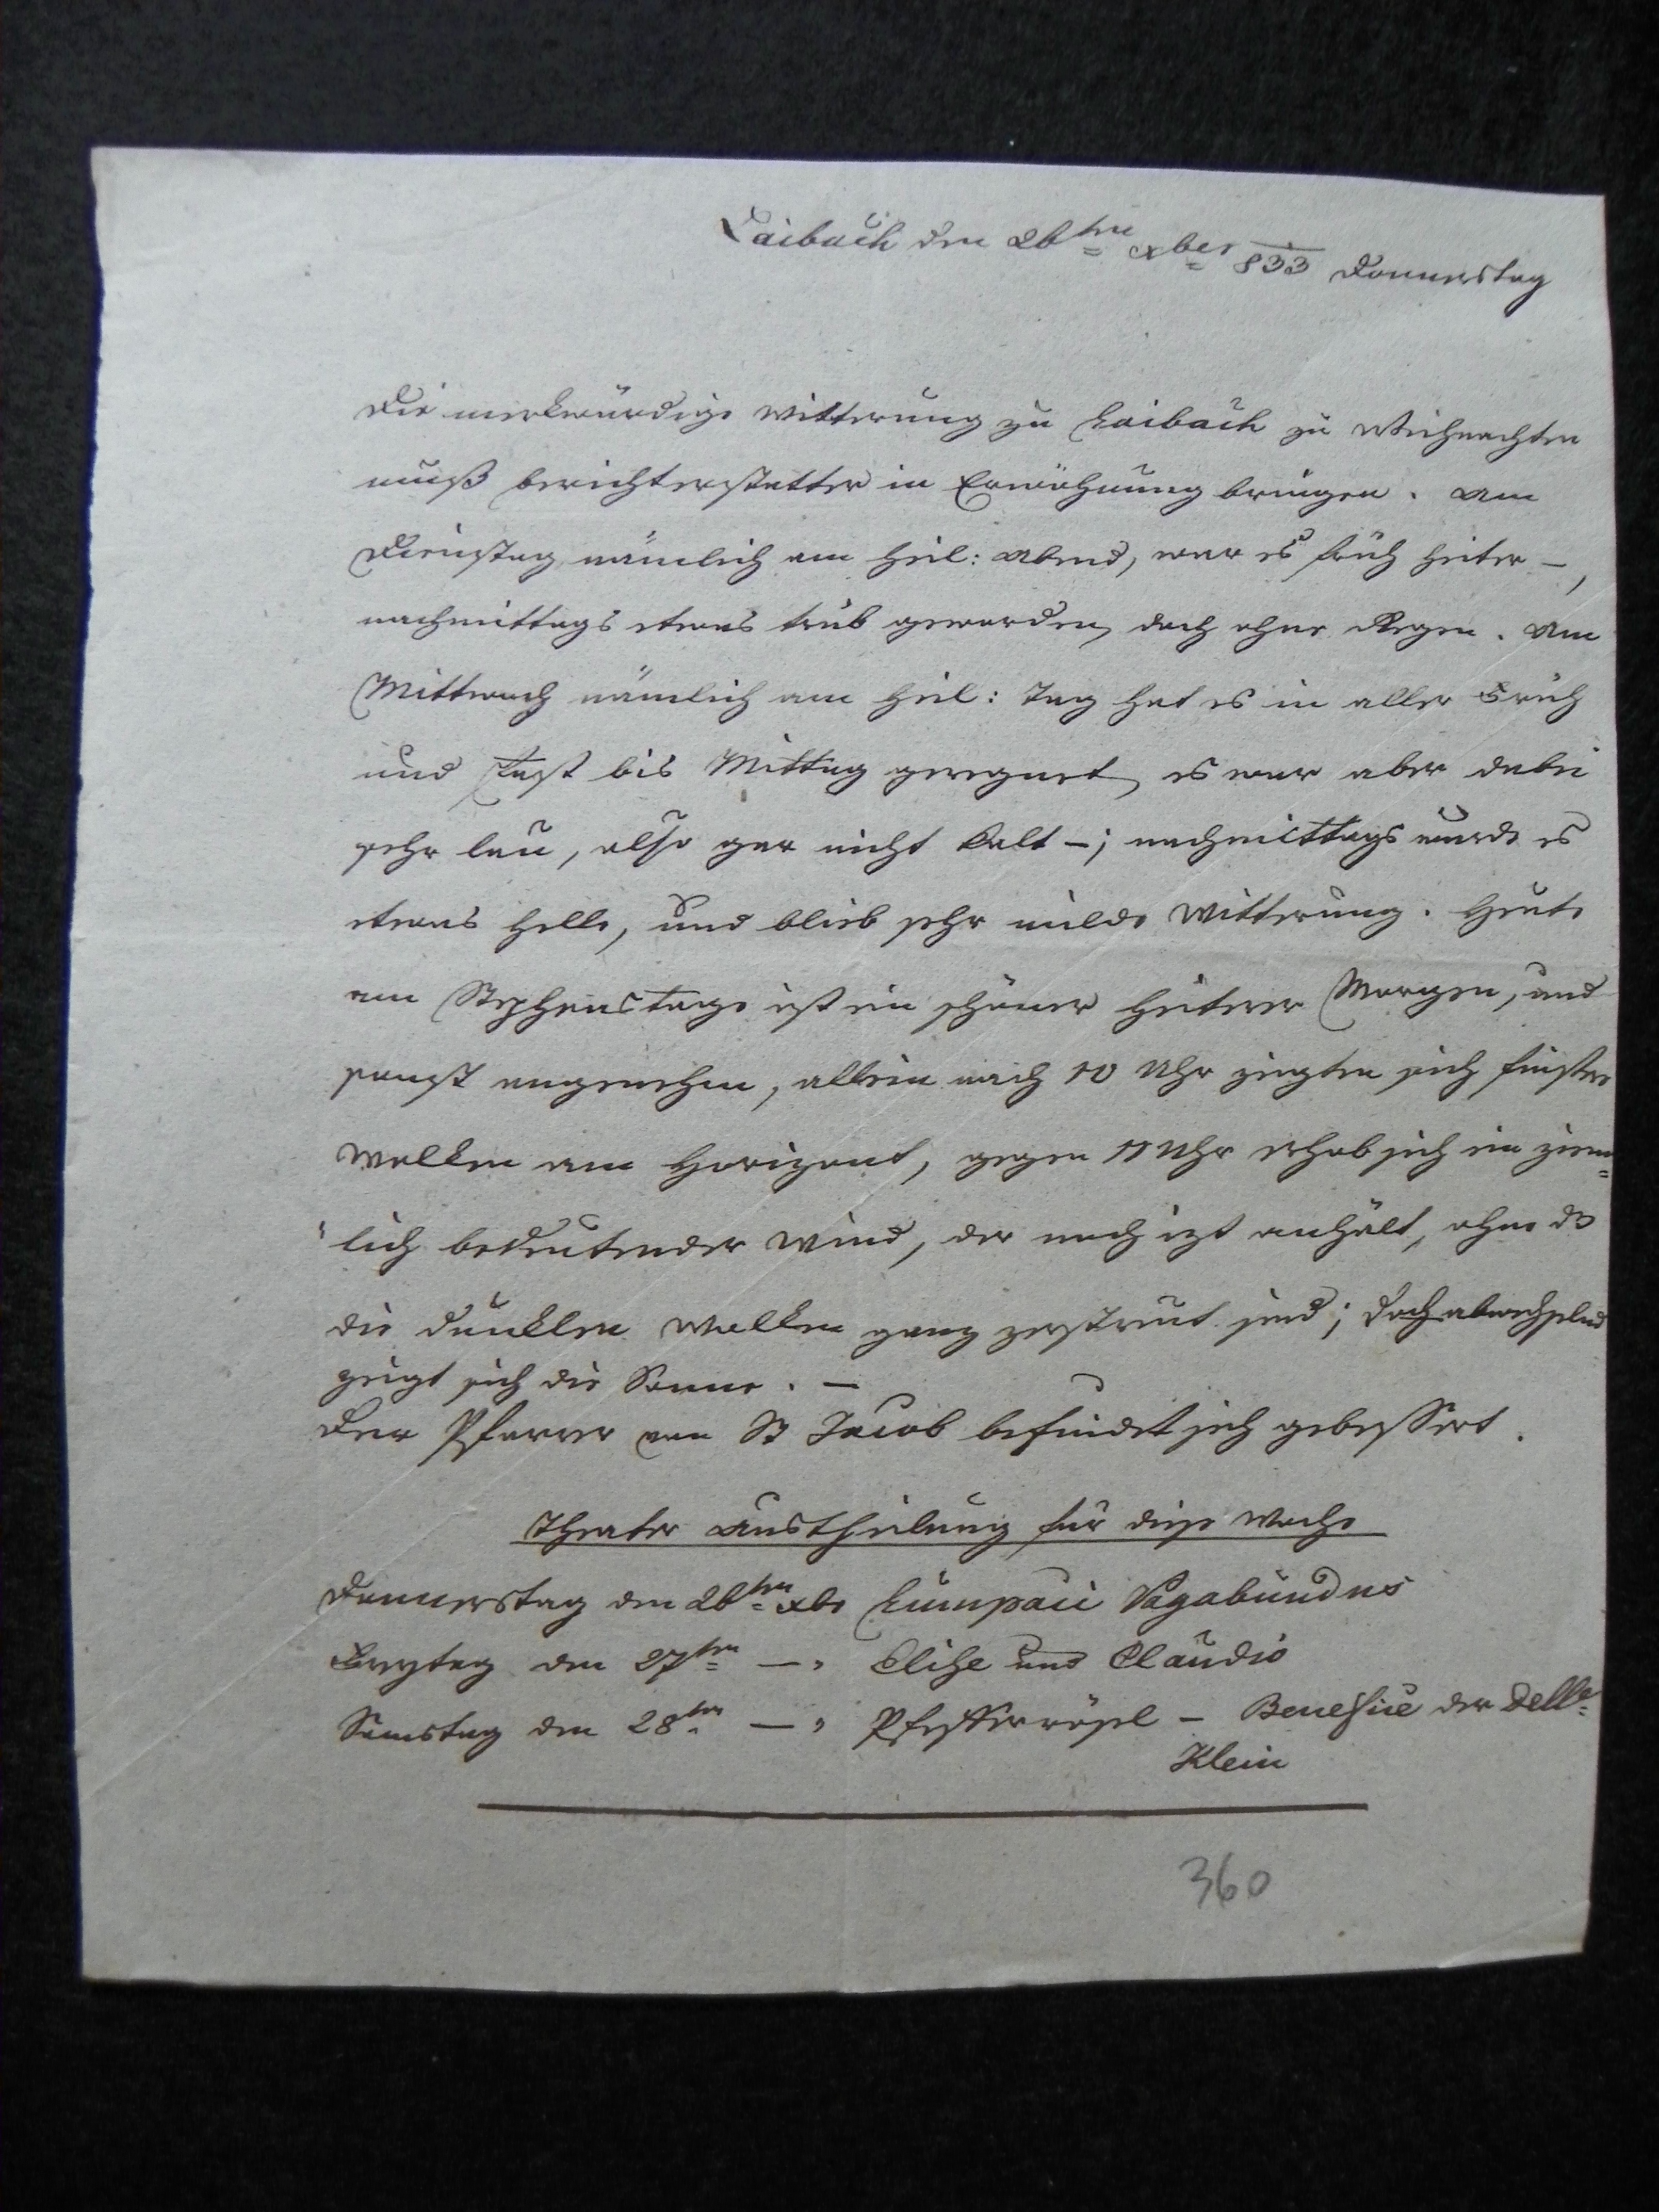 Laibach den 26ten xber 833 Donnerstag
Die merkwürdige Witterung zu Laibach zu Weihnachten
muß berichterstatter in Erwähnung bringen. Am
Dienstag nämlich am heil: Abend, war es früh heiter –,
nachmittags etwas trüb geworden, doch ohne Regen. Am
Mittwoch nämlich am heil: Tag hat es in aller Früh
und fast bis Mittag geregnet, es war aber dabei
sehr lau, also gar nicht kalt –; nachmittags wurde es
etwas helle, und blieb sehr milde Witterung. Heute
am Stephanstage ist ein schöner heiterer Morgen, und
sonst angenehm, allein nach 10 Uhr zeigten sich finstre
Wolken am Horizont, gegen 11 Uhr erhob sich ein ziem=
"lich bedeutender Wind, der noch izt anhält, ohne dß
die dunklen Wolken ganz zerstreut sind; doch abwechselnd
zeigt sich die Sonne. –
Der Pfarrer von St Jacob befindet sich gebessert.
Theater Austheilung für diese Woche
Donnerstag den 26ten xbr Lumpaci Vagabundus
Freytag den 27ten — " Elise und Claudio
Samstag den 28ten — " Pfefferrösel – Benefice der Delle
Klein
360